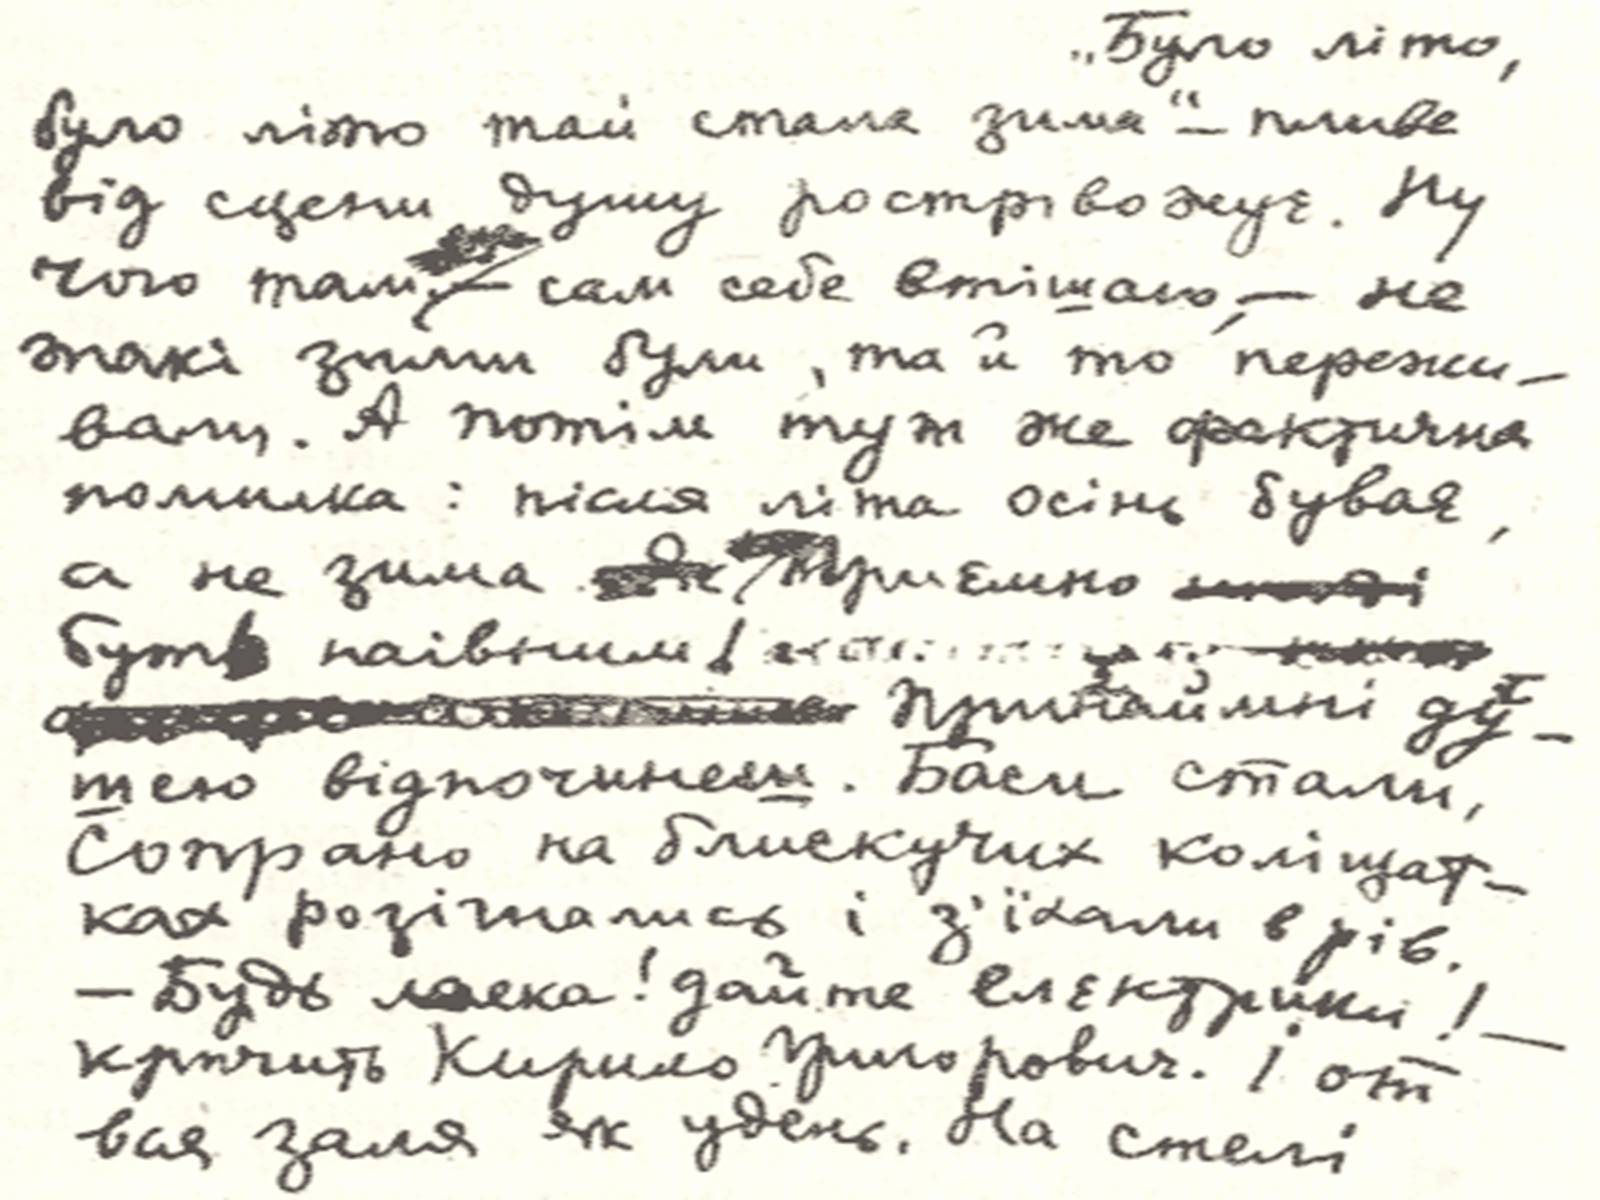 „Було літо,
було літо тай стала зима“ – пливе
від сцени душу розтрівожує. Ну
чого там, – сам себе втішаю, – не
такі зими були, та й то пережи-
вали. А потім тут же фактична
помилка: після літа осінь буває,
а не зима Приємно
буть наівним!
Принаймні ду-
шею відпочинеш. Баси стали,
Сопрано на блискучих коліщат-
ках розігнались і з'їхали в рів.
– Будь ласка! дайте електрики! –
кричить Кирило Григорович. І от
вся заля як удень. На стелі